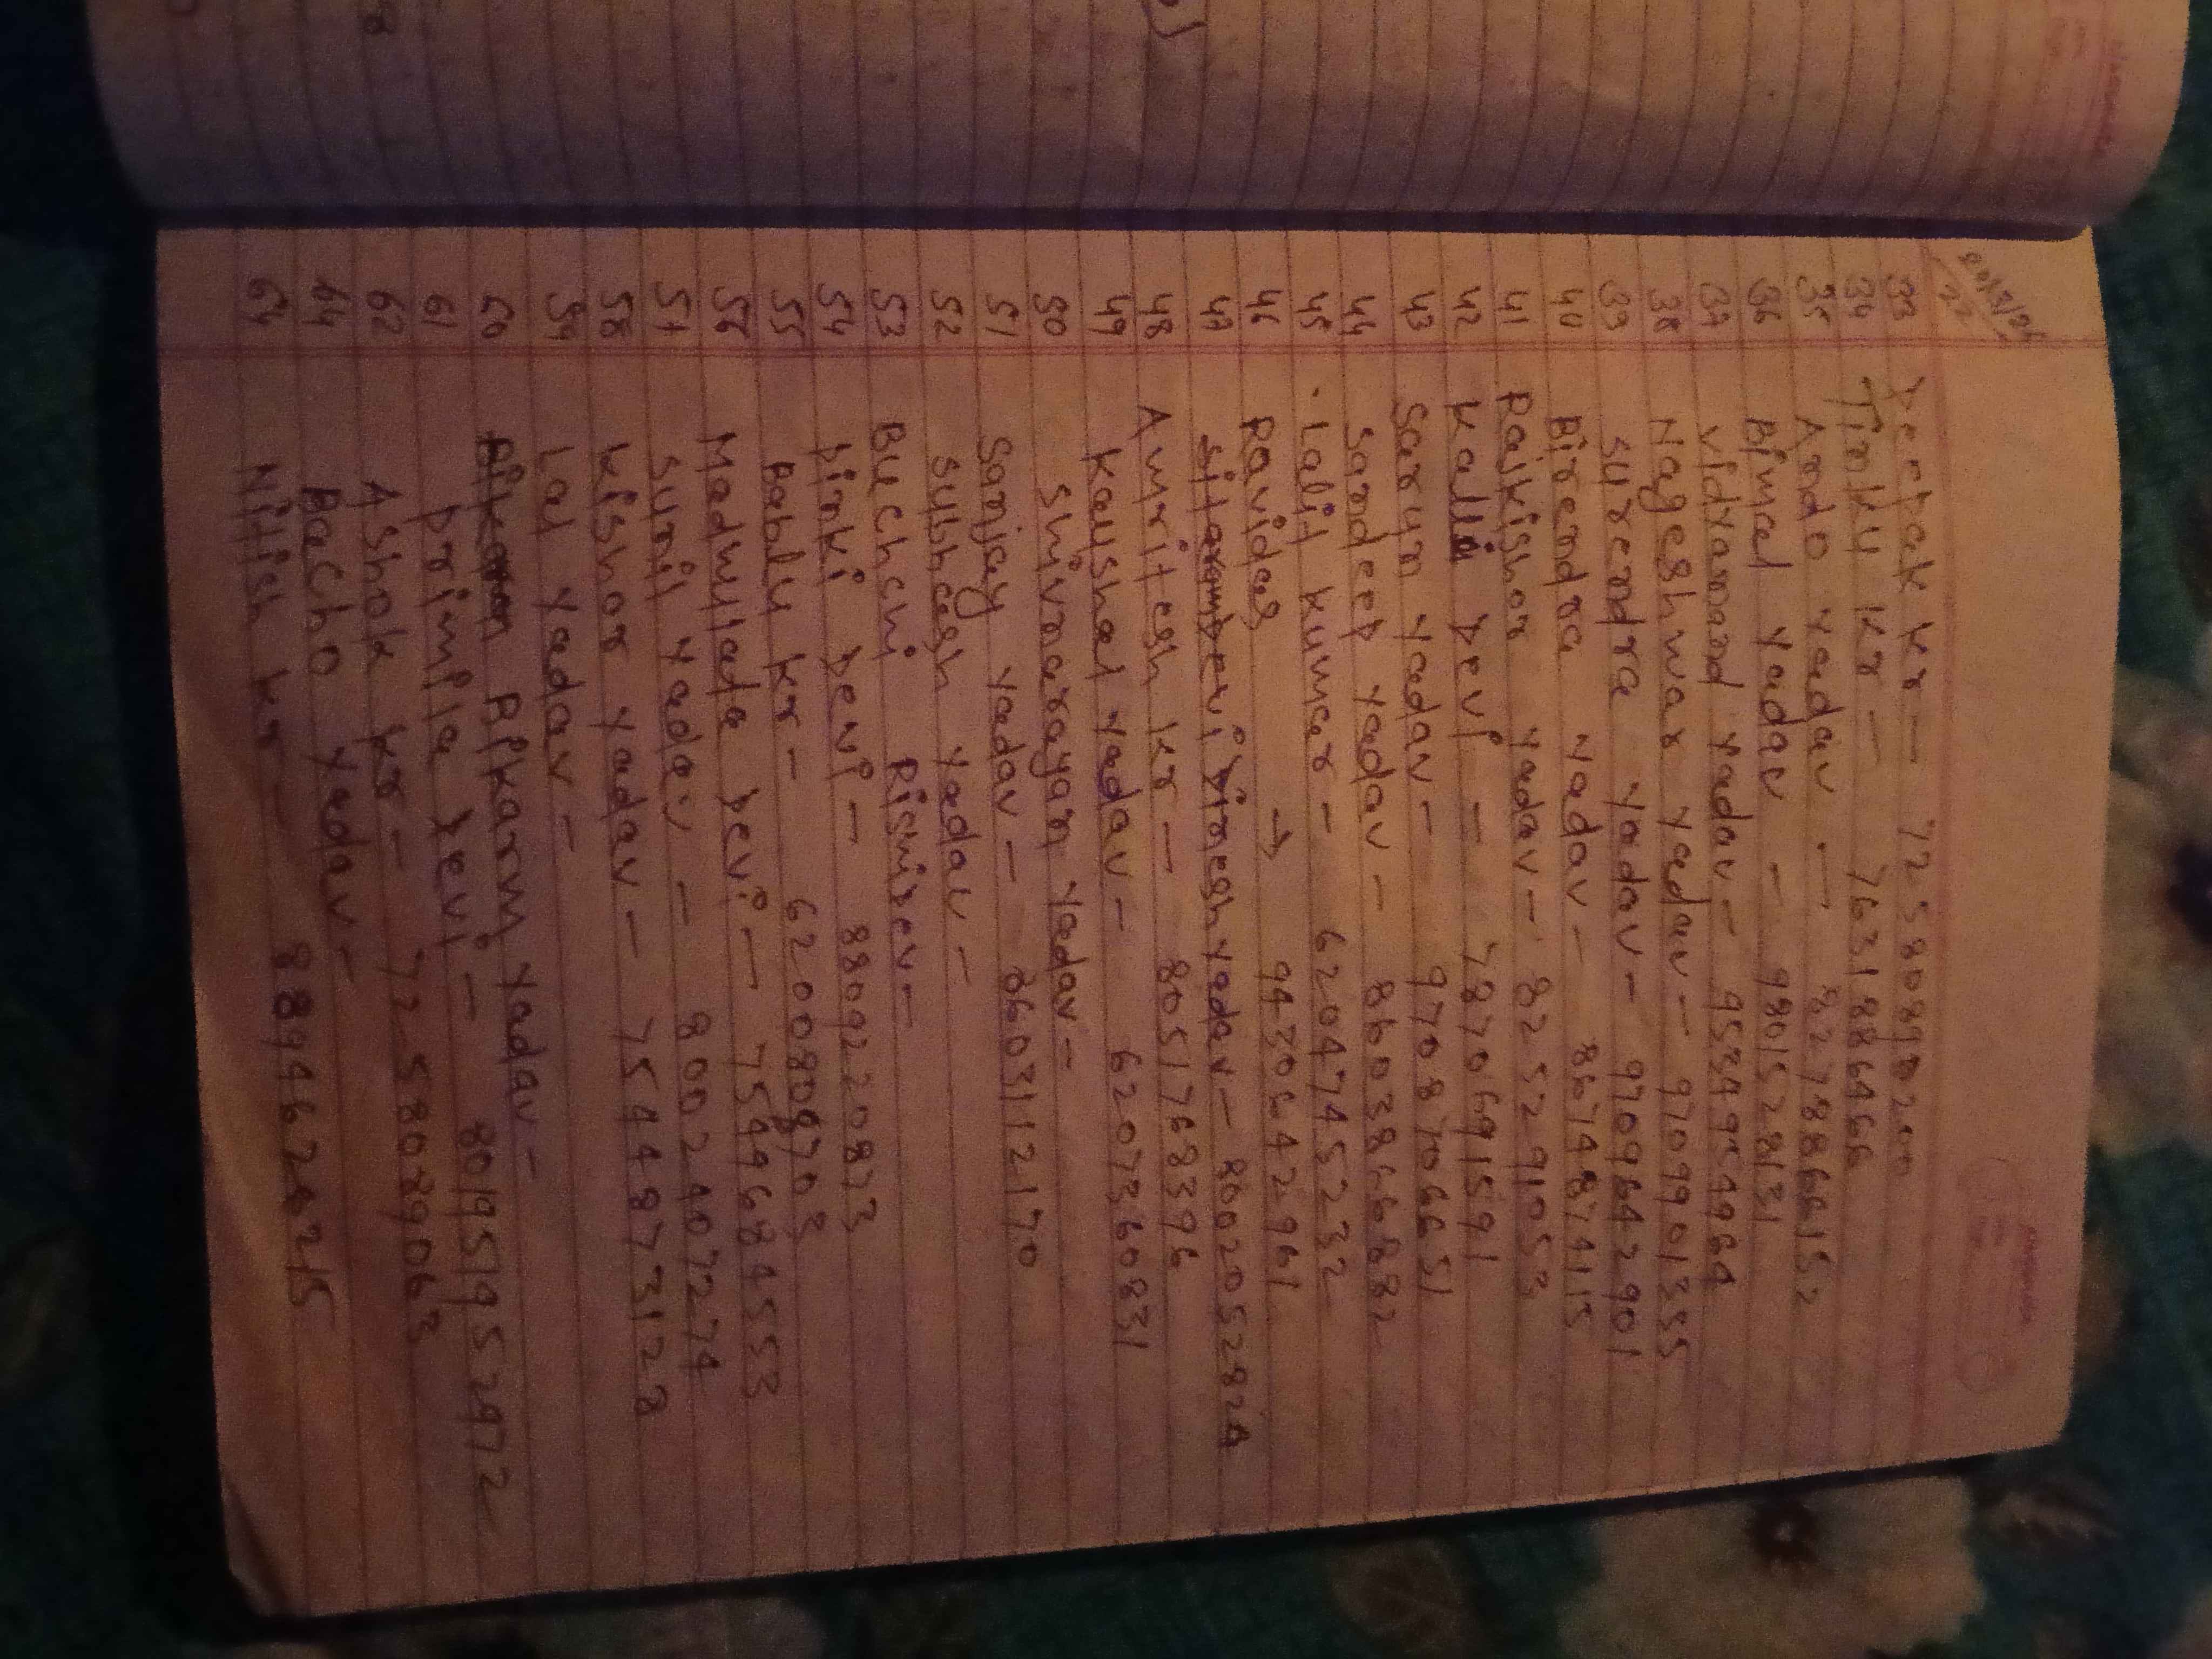 33 Deepak kr — 7258089020
34 Tinku kr — 7631886466
35 Ando Yadav — 8278866152
36 Bimal Yadav — 9801528131
37 Vidyanand Yadav — 9534954964
38 Nageshwar Yadav — 9709901355
39 Surendra Yadav — 9709642901
40 Birendra Yadav — 8674874115
41 Rajkishor Yadav — 82525291053
42 Kalli Devi — 7870691591
43 Sarun Yadav — 97708706651
44 Sandeep Yadav — 8603866882
45 Lalit Kumar — 6204745232
46 Ravidas → 9430642961
47 Dinesh Yadav — 8002052824
48 Amritesh kr — 8051768396
49 Kaushal Yadav — 6207360831
50 Shivnarayan Yadav —
51 Sanjay Yadav — 8603112170
52 Subhash Yadav —
53 Buchchi Rishidev —
54 Pinki Devi — 8809220873
55 Bablu kr — 6200808703
56 Madhulata Devi — 7549684553
57 Sunil Yadav — 8002407274
58 Kishor Yadav — 7544873128
59 Lal Yadav —
60 Bikarm Yadav —
61 Primila Devi — 8019519529 72
62 Ashok kr — 7258089063
64 Bacho Yadav —
64 Nitish kr —